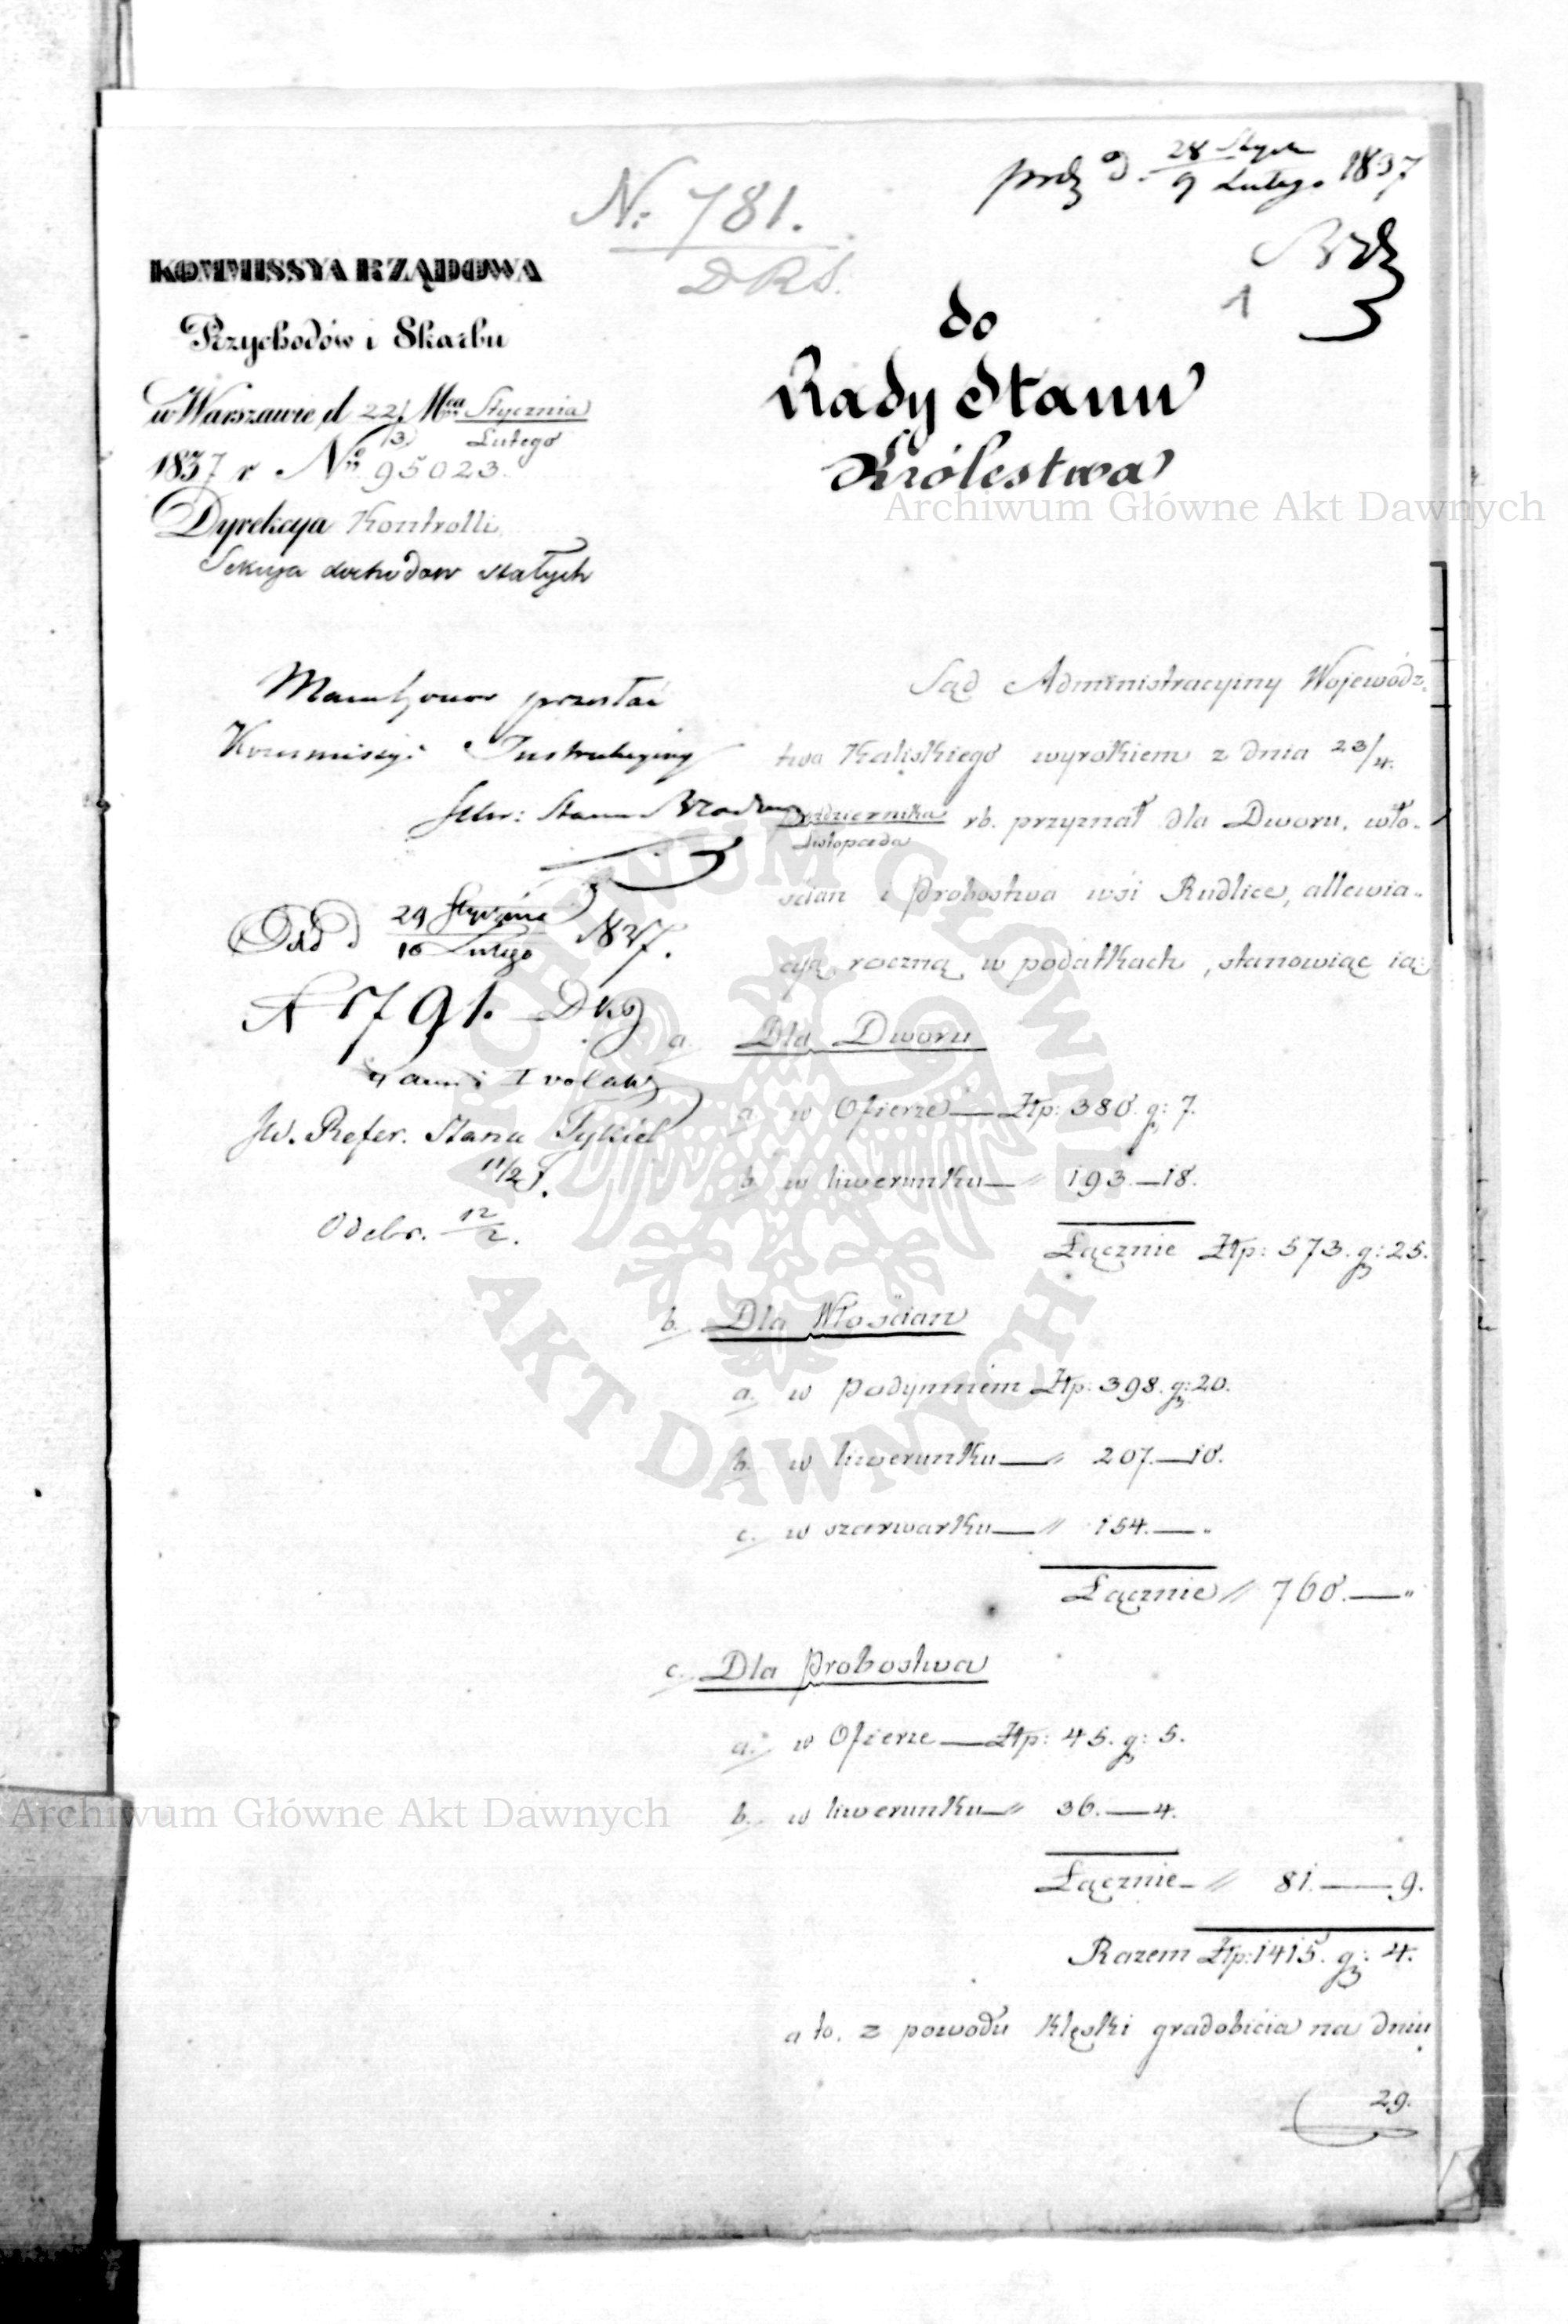 prdz d. 28 Stycz / 9 Lutego 1837
N: 781.
DRS.
1
KOMMISSYA RZĄDOWA
Przychodów i Skarbu
w Warszawie d 22/3 Mca Stycznia / Lutego
1837 r Nro 95023.
Dyrekcya Kontrolli
Sekcya dochodow stałych
do
Rady Stanu
Królestwa
przesłać
Kommissyi Instrukcyiney
Sąd Administracyiny Wojewódz-
twa Kaliskiego wyrokiem z dnia 23/4.
Października / Listopada rb. przyznał dla Dworu, wło-
ścian i Probostwa wsi Rudlice, allewia-
cyą roczną w podatkach, stanowiąc ią:
24 Stycznia / 10 Lutego 1837.
N 1791.
JW. Refer. Stanu Tykiel
11/2
Odebr. 12/2.
a Dla Dworu
a w Ofierze — Złp: 380. gr: 7.
b w liwerunku — " 193. — 18.
Łącznie Złp: 573. gr: 25.
b. Dla Włościan
a. w podymnem Złp: 398. gr: 20.
b. w liwerunku — " 207. — 10.
c. w szarwarku — " 154. — "
Łącznie " 760. — "
c. Dla Probostwa
a. w Ofierze — Złp: 45. gr: 5.
b. w liwerunku — " 36. — 4.
Łącznie - " 81. — 9.
Razem Złp: 1415. gr: 4.
a to, z powodu klęski gradobicia na dniu
29.
Archiwum Główne Akt Dawnych
Archiwum Główne Akt Dawnych
ARCHIWUM GŁÓWNE
AKT DAWNYCH